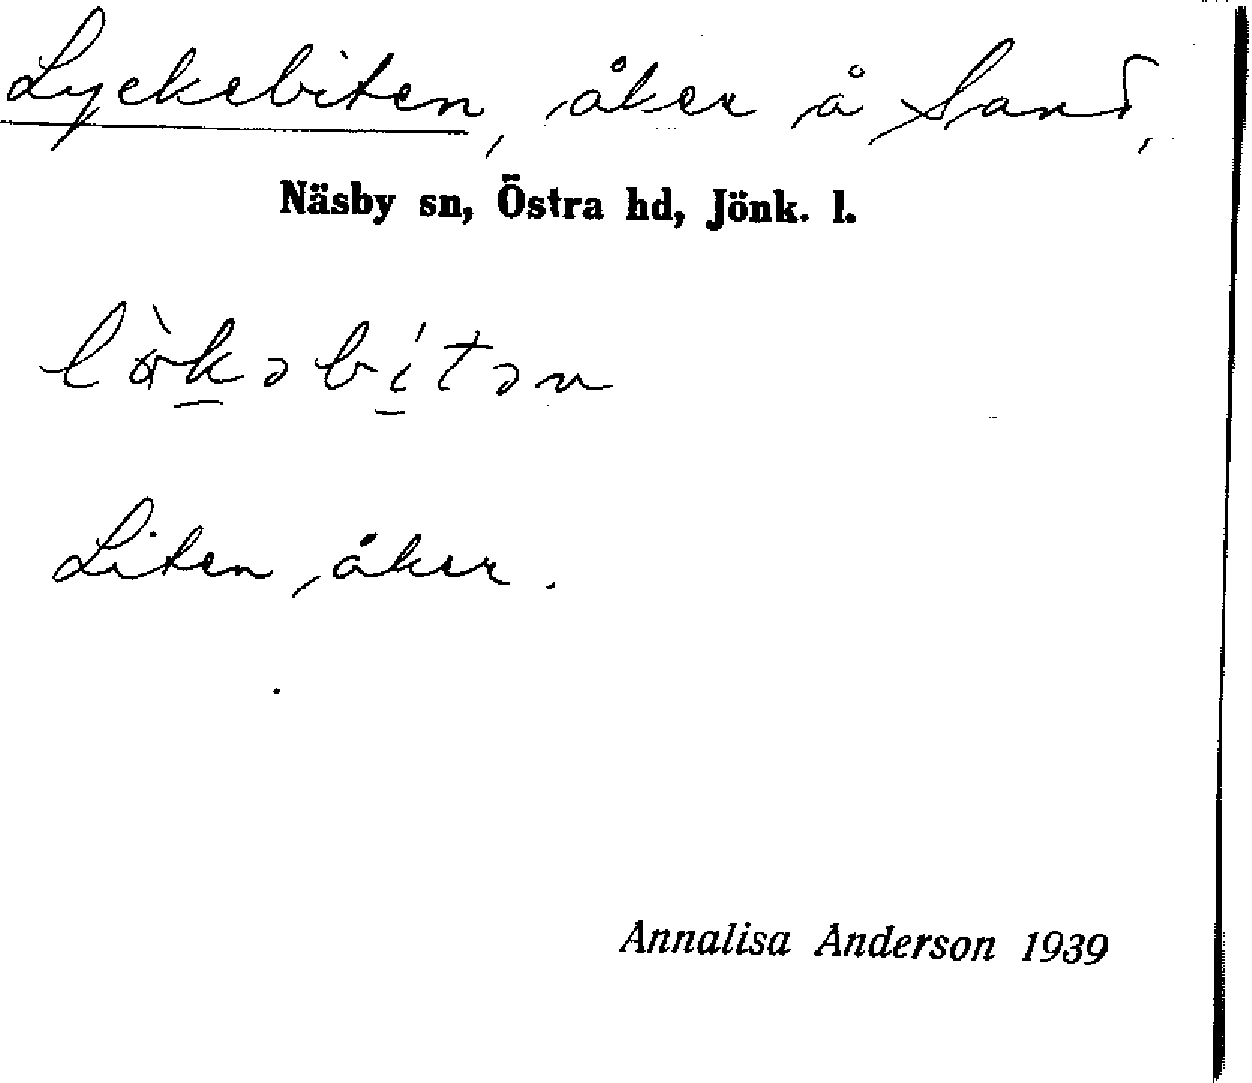 Lyckebiten, åker å Sand,
Näsby sn, Östra hd, Jönk. l.
lö̀kəbítən
Liten åker.
Annalisa Anderson 1939